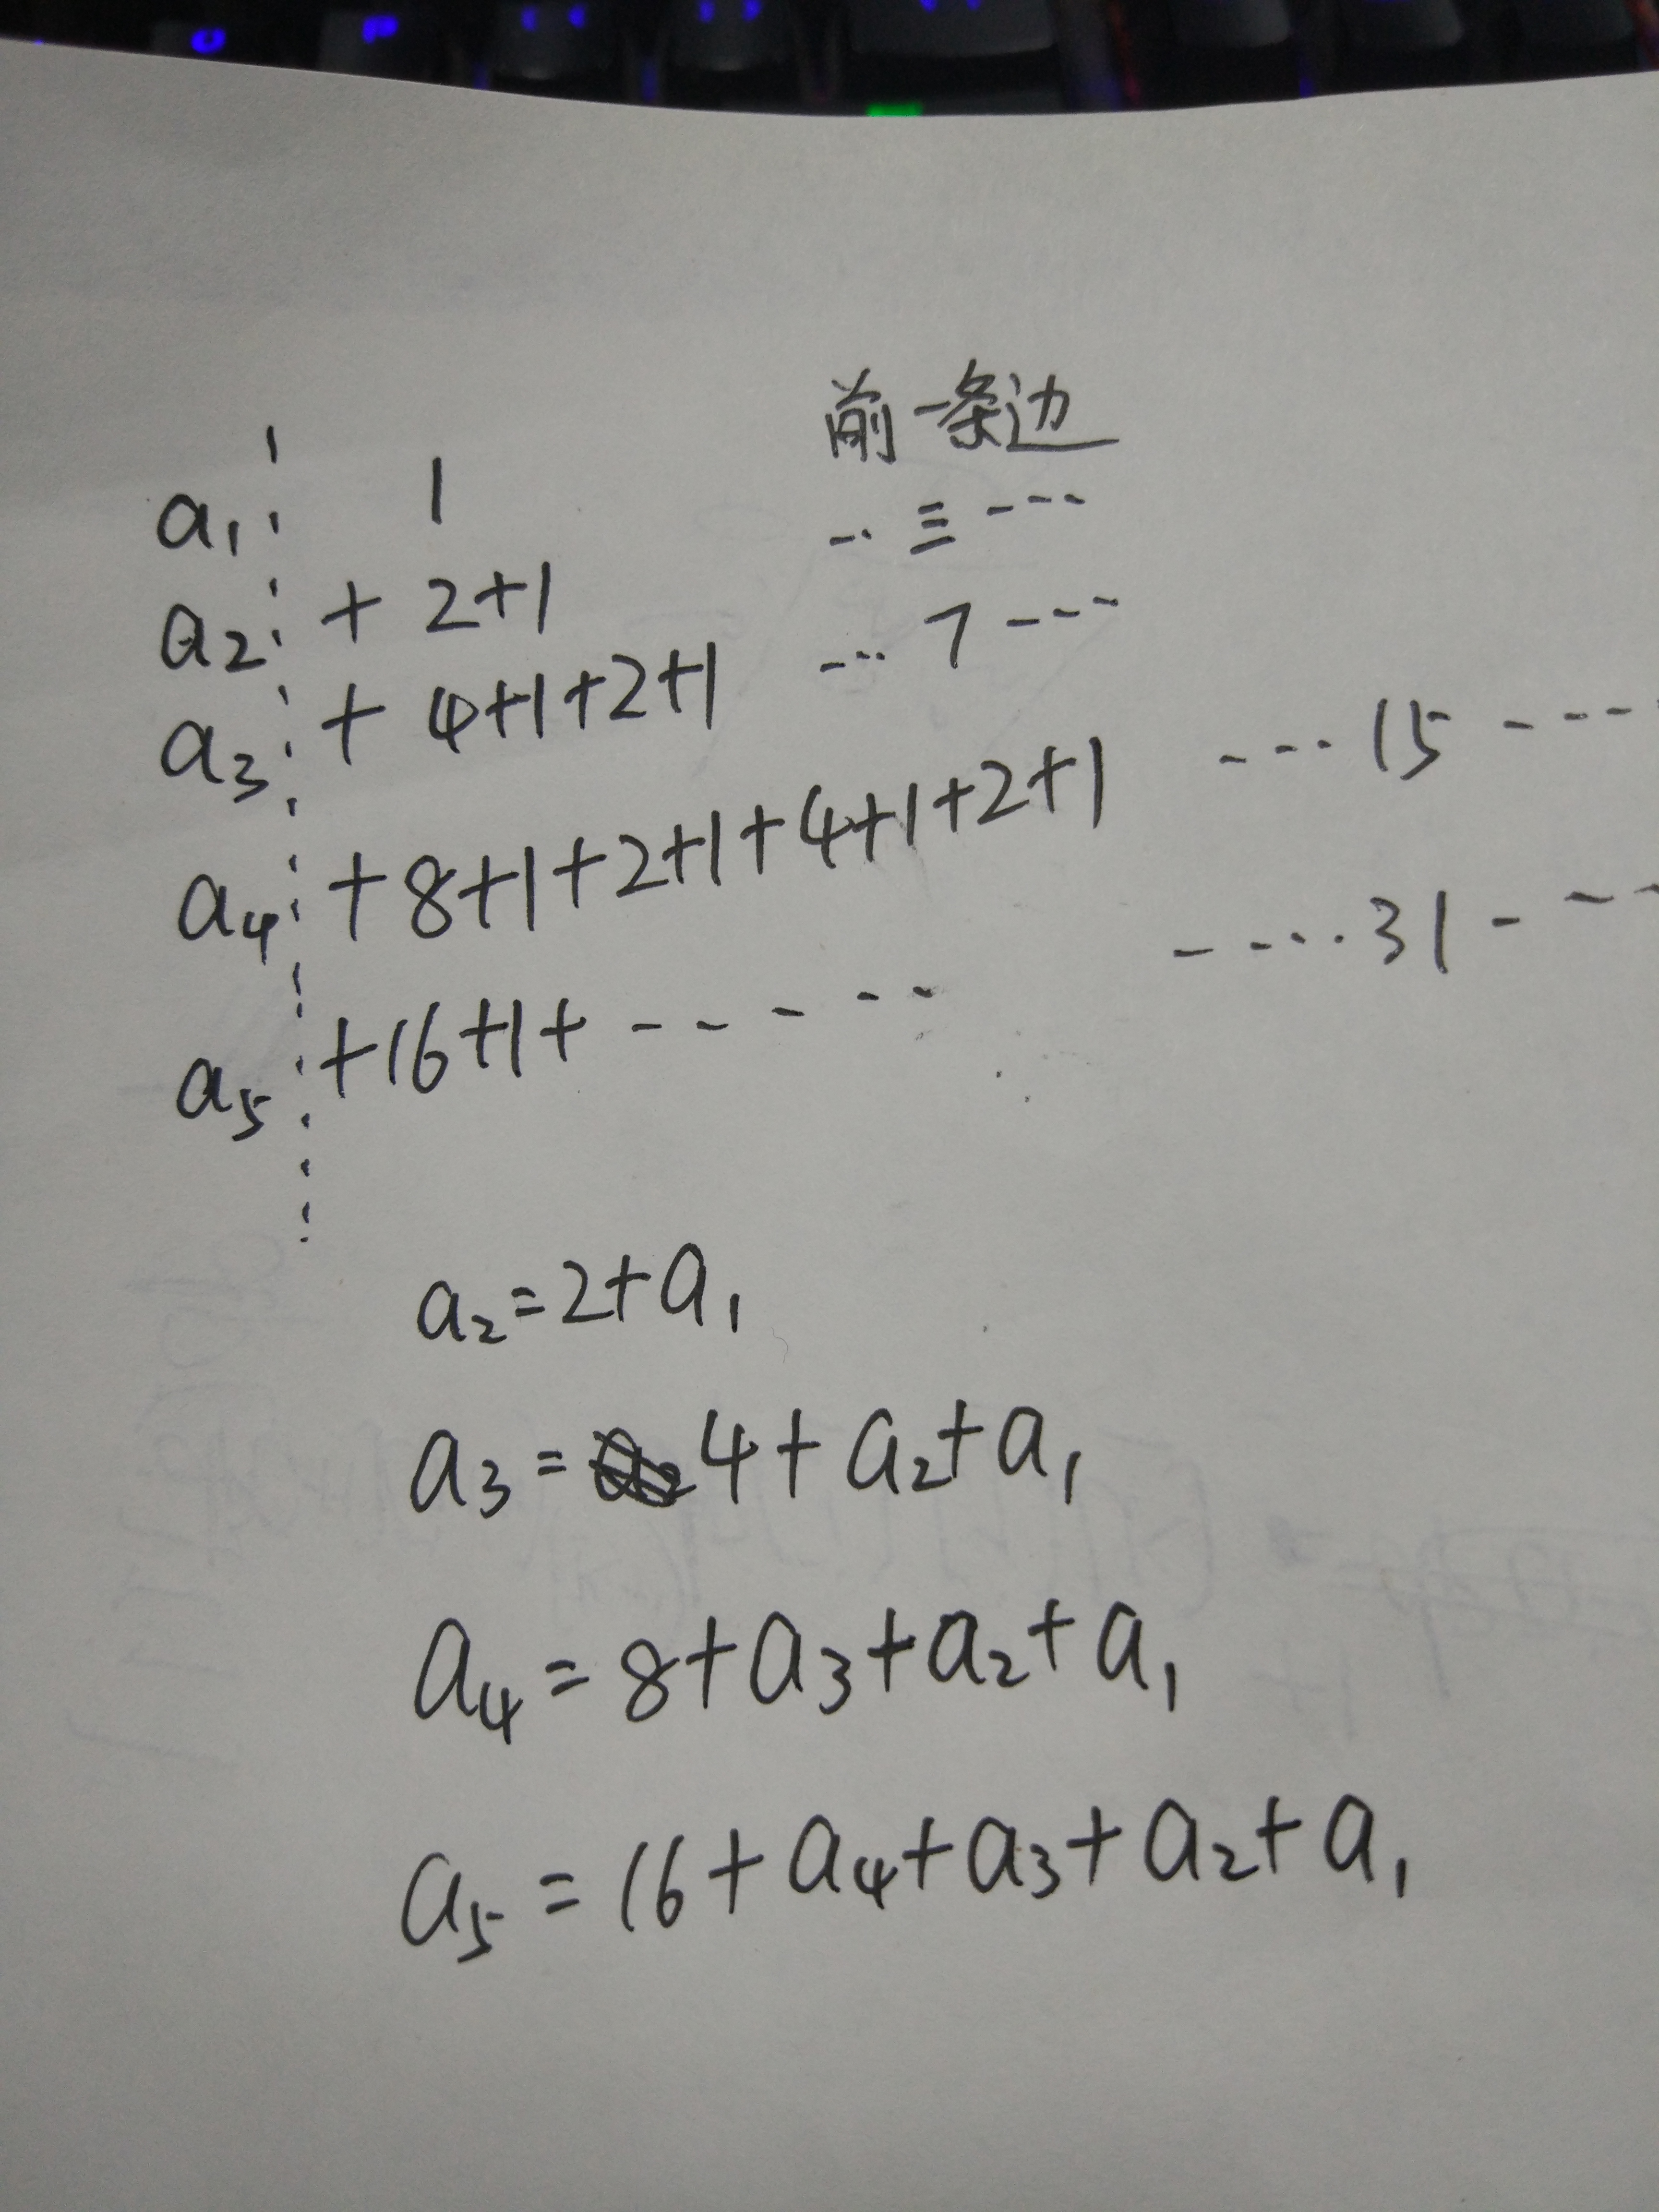 a₁ 1 前一条边
a₂ + 2+1 -·· 三 ----
a₃ + 4+1+2+1 -··· 7 ----
a₄ + 8+1+2+1+4+1+2+1 --·· 15 ----
a₅ +16+1+ ----- ----· 31 ---
a₂=2+a₁
a₃= 4+a₂+a₁
a₄=8+a₃+a₂+a₁
a₅=16+a₄+a₃+a₂+a₁